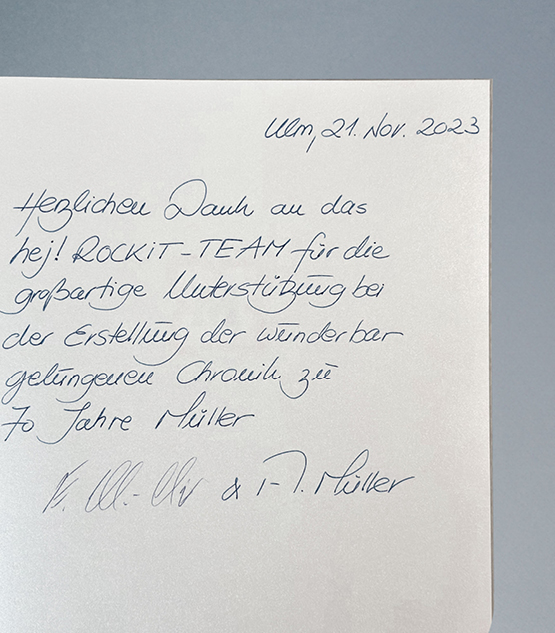 Ulm, 21. Nov. 2023
Herzlichen Dank an das
hej! ROCKiT-TEAM für die
großartige Unterstützung bei
der Erstellung der wunderbar
gelungenen Chronik zu
70 Jahre Müller
& Müller